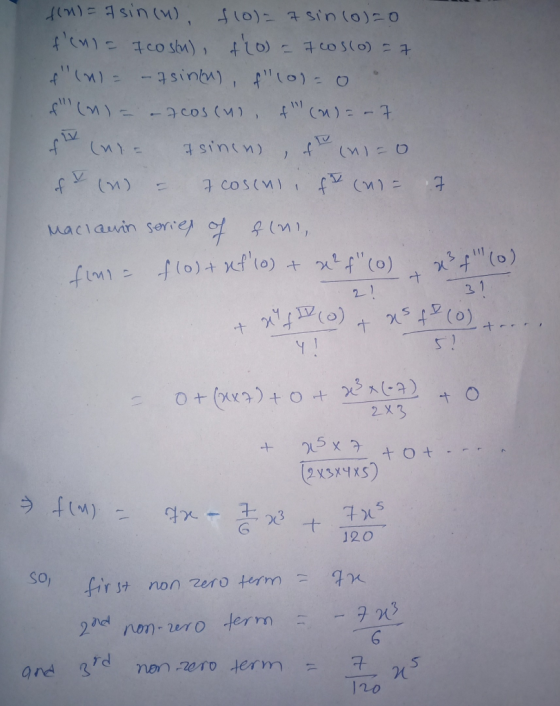 f(x) = 7 sin(x), f(0) = 7 sin(0) = 0
f'(x) = 7cos(x), f'(0) = 7cos(0) = 7
f''(x) = -7sin(x), f''(0) = 0
f'''(x) = -7cos(x), f'''(x) = -7
f^IV (x) = 7sin(x), f^IV (x) = 0
f^V (x) = 7cos(x), f^V (x) = 7
Maclaurin series of f(x),
f(x) = f(0) + xf'(0) + x² f''(0)/2! + x³ f'''(0)/3!
+ x⁴ f^IV(0)/4! + x⁵ f^V(0)/5! + ....
= 0 + (x×7) + 0 + x³×(-7)/2×3 + 0
+ x⁵×7/(2×3×4×5) + 0 + .....
⇒ f(x) = 7x - 7/6 x³ + 7x⁵/120
so, first non zero term = 7x
2nd non-zero term = -7x³/6
and 3rd non-zero term = 7/120 x⁵